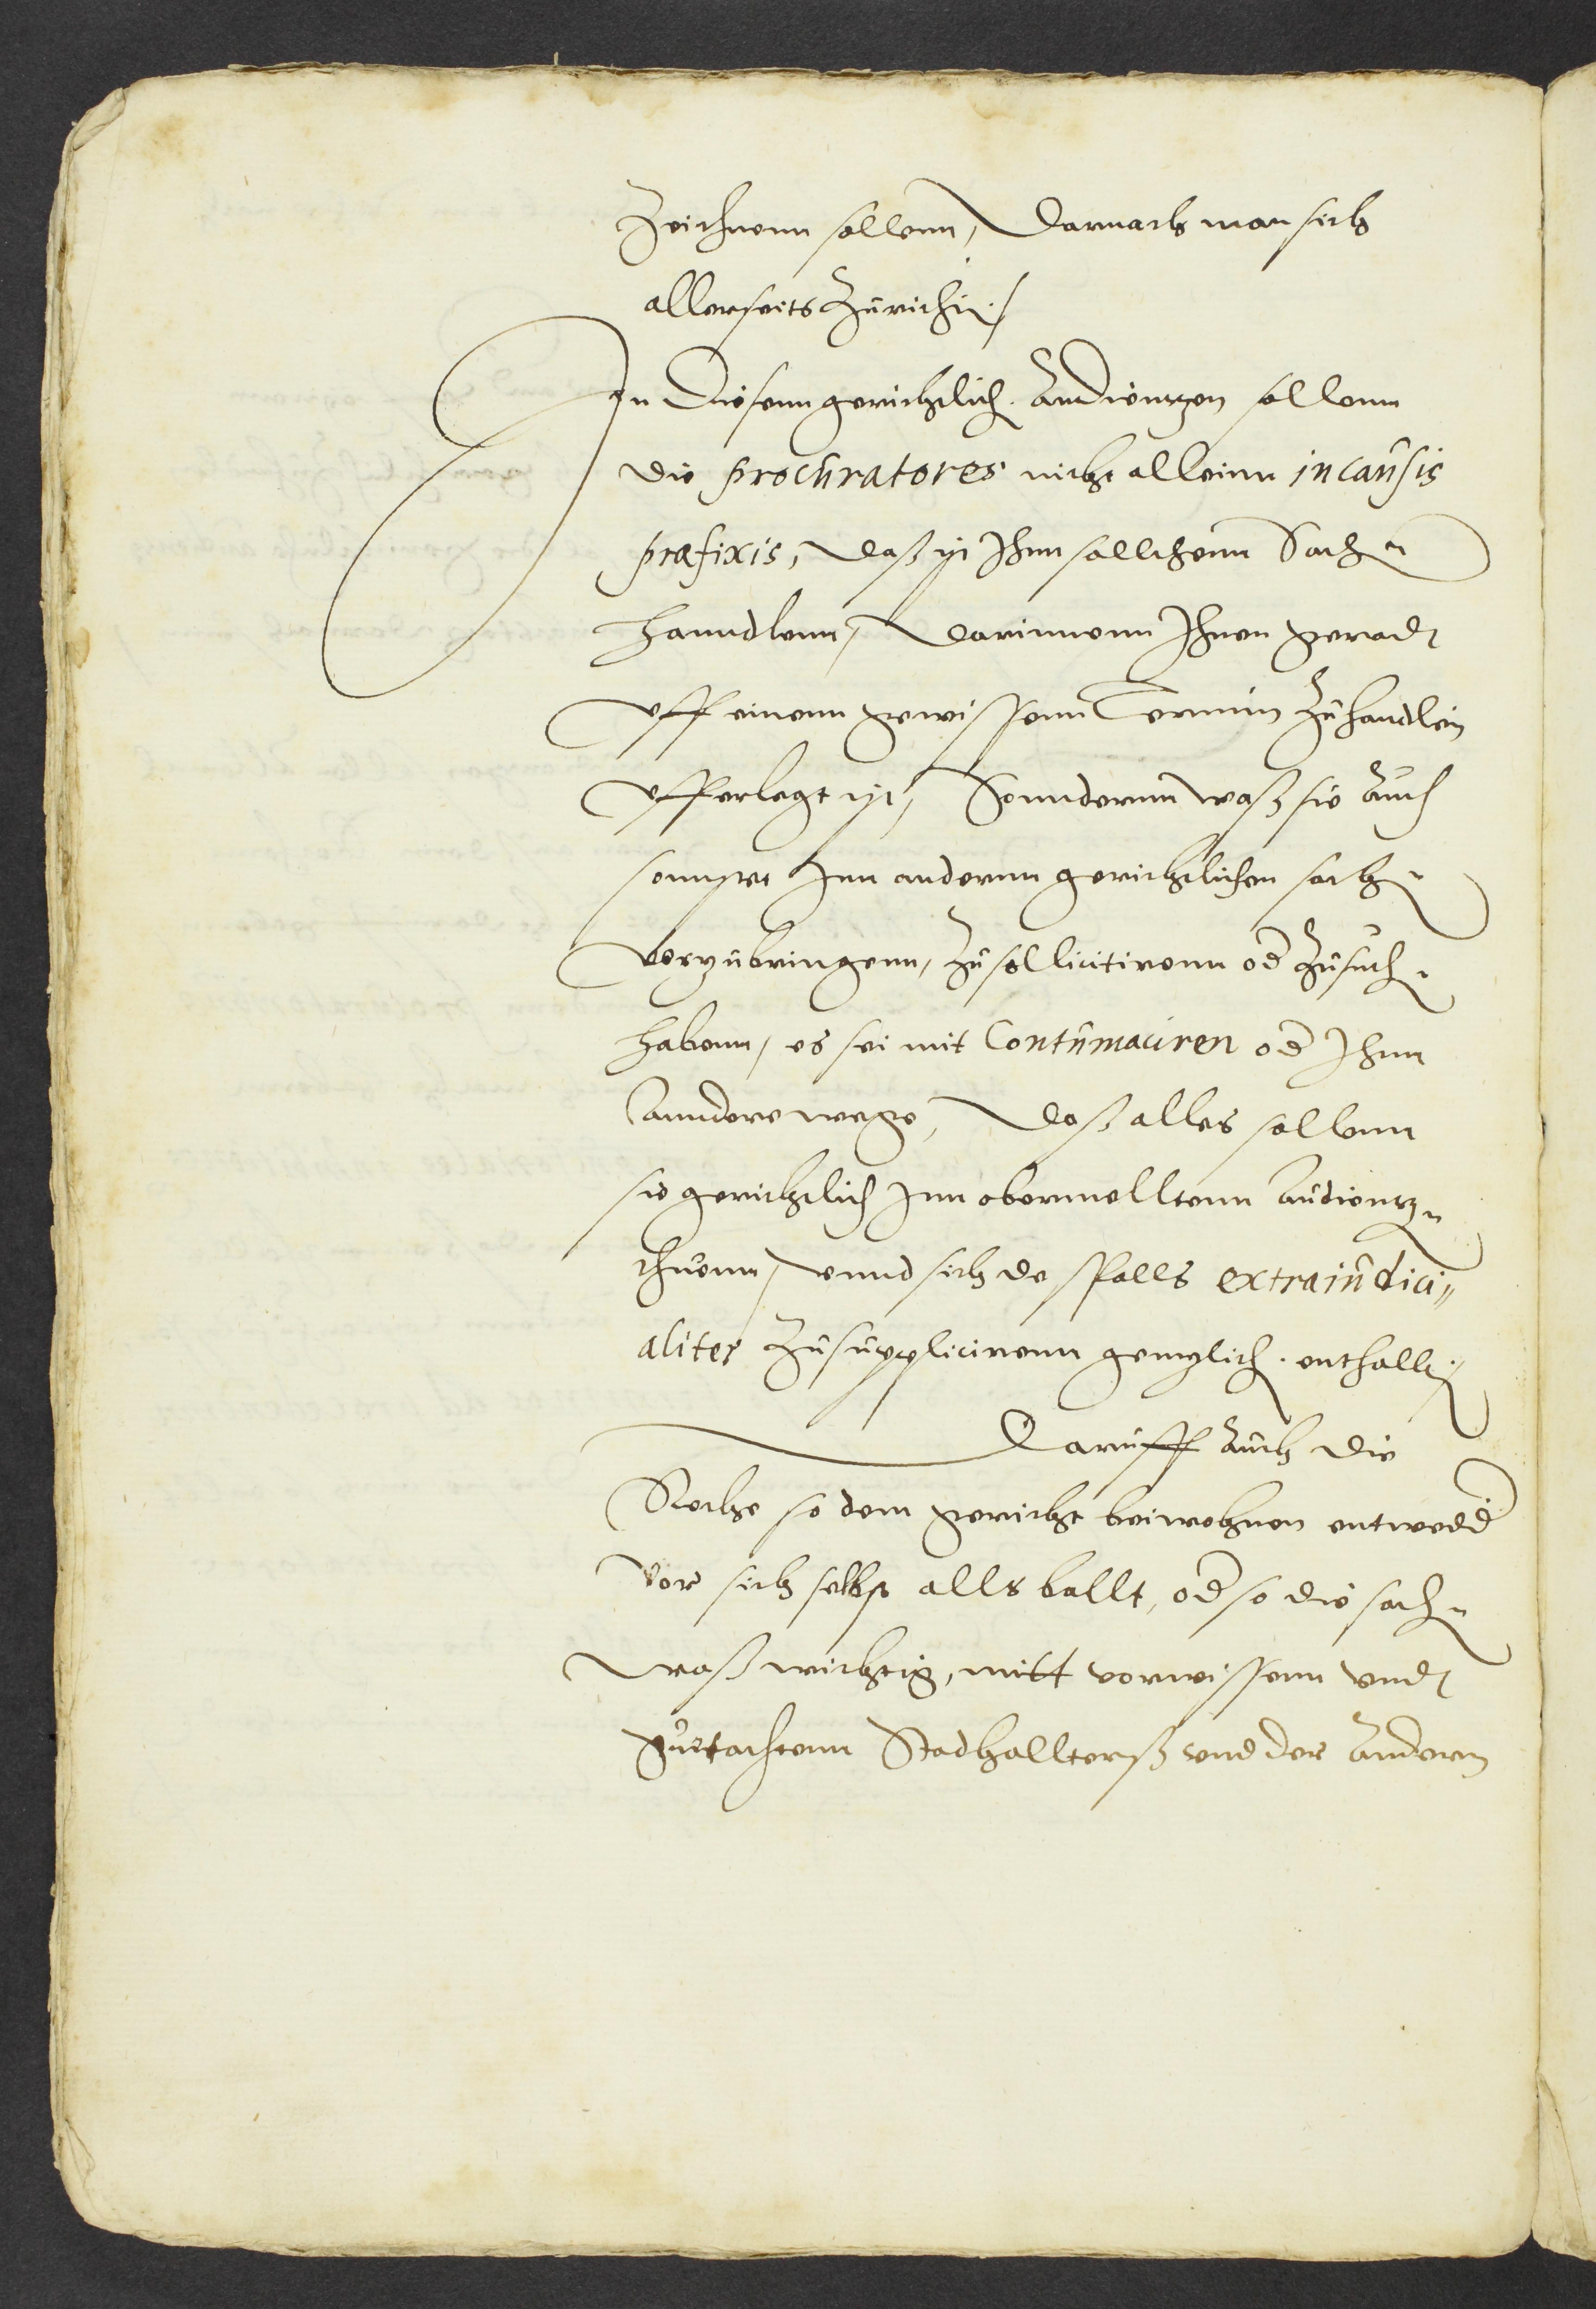 Zeichnenn sollenn, Darnach man sich
allerseits Zurichtn./
In Diesenn gerichtlich. Audientzen sollenn
die procuratores nicht alleinn in causis
præfixis, daß ist Ihnn sollchenn Sachn
hanndlenn, Darinnenn Ihnen gerad
uff einenn gewissenn Termin Zuhandlen
ufferlegt ist, Sonndernn waß sie Auch
sonnst Inn andernn gerichtlichen sachn
vorzubringenn, Zu sollicitirenn od Zusuchn
habenn, es sei mit Contumaciren od Ihnn
anndere wege, daß alles sollenn
sie gerichtlich Inn obermelltenn Audientzn
thuenn, vnnd sich desfalls extraiudici„
aliter Zu supplicirenn gentzlich. enthallt./
Daruff Auch die
Rechte so dem gericht beiwohnen entwedd
vor sich selbst alls ballt, od so die sachn
waß wichtig, mitt vorwissenn vnd
guttachtenn Stadhallterß vnd der Andern